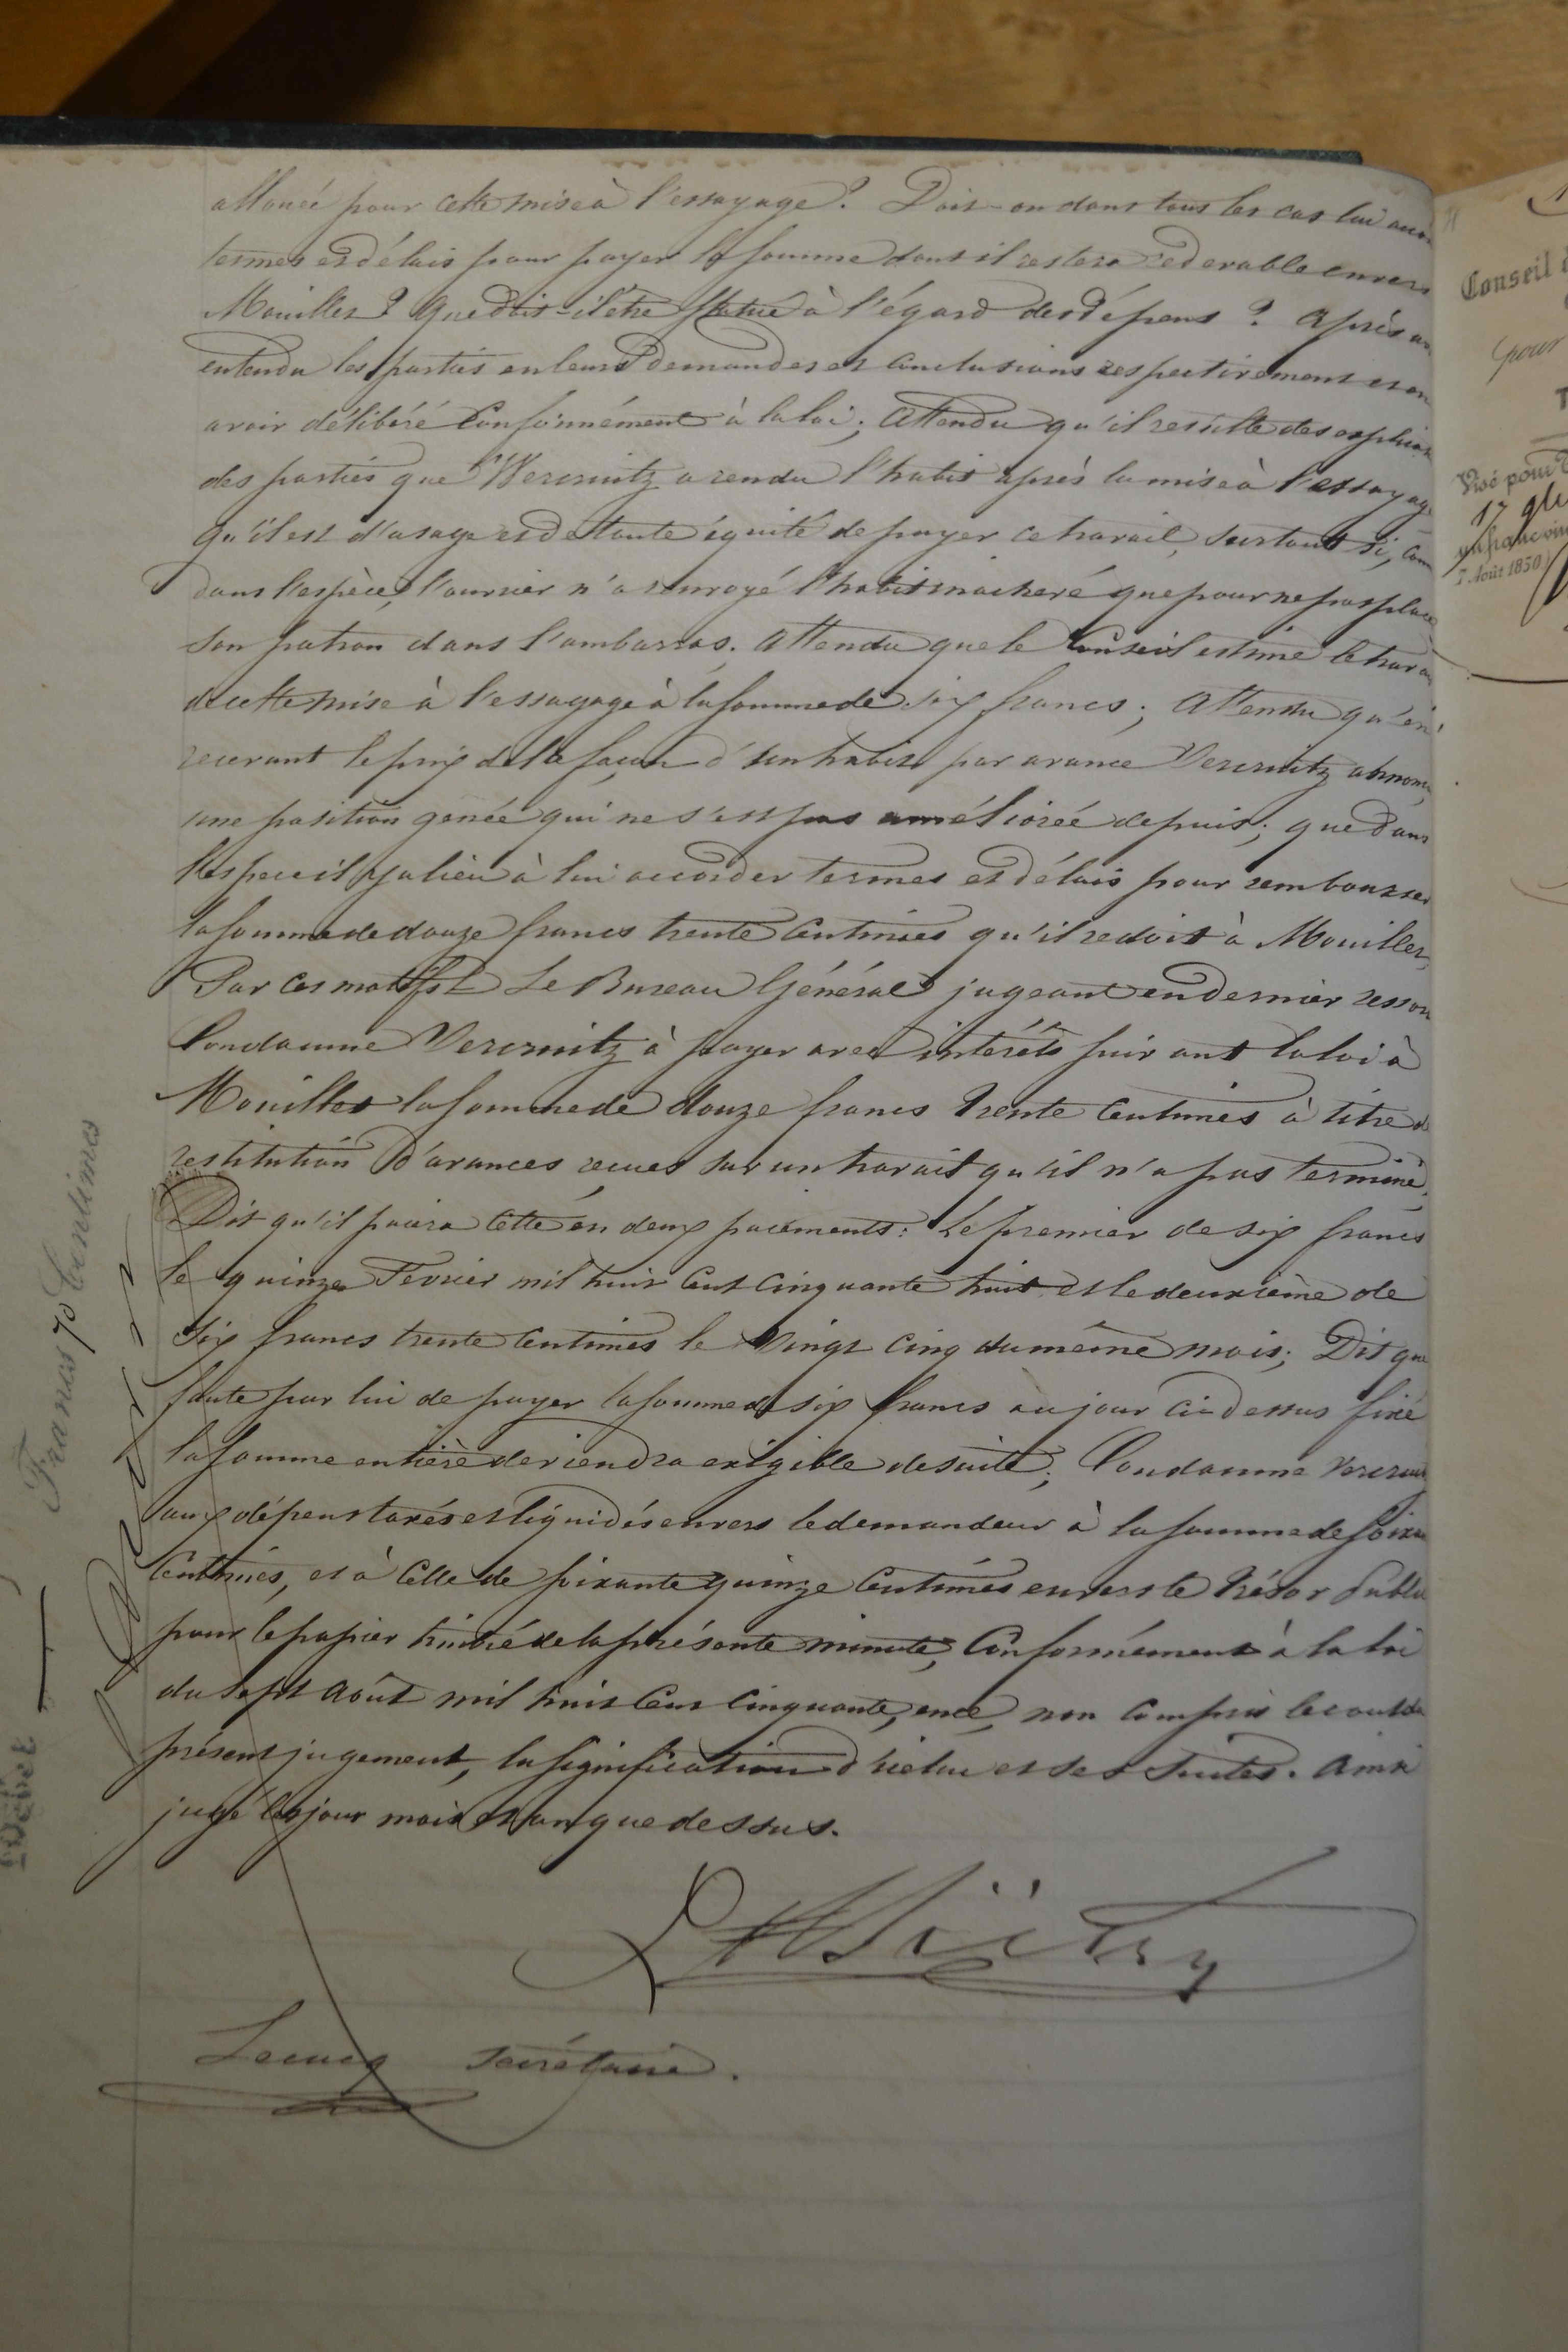 alloué pour cette mise à l'essayage? Doit-on dans tous les cas lui
termes et délais pour payer la somme dont il restera redevable envers
Mouillet? Que doit-il être statué à l'égard des dépens? Après
entendu les parties en leurs demandes et conclusions respectivement et en
avoir délibéré conformément à la loi; Attendu qu'il résulte des
des parties que Wercruitz a rendu l'habit après la mise à l'essayage
qu'il est d'usage et de toute équité de payer ce travail, surtout si,
dans l'espèce, l'ouvrier n'a renvoyé l'habit inachevé que pour ne pas
son patron dans l'embarras. Attendu que le Conseil estime le
de cette mise à l'essayage à la somme de six francs; Attendu qu'en
recevant le prix de la façon d'un habit par avance Vercruitz
une position génée qui ne s'est pas améliorée depuis; que dans
l'espece il y a lieu à lui accorder termes et délais pour rembourser
la somme de douze francs trente centimes qu'il redoit à Mouillet,
Par ces motifs Le Bureau Général jugeant en dernier
Condamne Vercruitz à payer avec intérêts suivant la loi à
Mouillet la somme de douze francs trente centimes à titre de
restitution d'avances reçues sur un travail qu'il n'a pas terminé,
Dit qu'il paiera cette en deux paiements: Le premier de six francs
le quinze Février mil huit cent cinquante huit et le deuxième de
six francs trente centimes le vingt cinq du même mois; Dit que
faute par lui de payer la somme de six francs au jour ci-dessus fixé
la somme entière deviendra exigible de suite; Condamne
aux dépens taxés et liquidés envers le demandeur à la somme de
centimes, et à celle de soixante quinze centimes envers le Trésor
pour le papier timbré de la présente minute, Conformément à la loi
du sept août mil huit cent cinquante, ence, non compris le coût du
présent jugement, la signification d'icelui et ses suites. Ainsi
jugé les jour mois et an que dessus.
Secrétaire.
Francs 70 Centimes
Débet
Conseil
pour
Visé pour
17
un franc
7 Août 1850